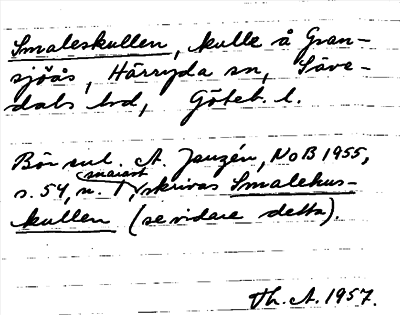 Smaleskullen, kulle å Gran-
sjöås, Härryda sn, Säve-
dals hd, Göteb. l.
Bör enl. A. Janzén, NoB 1955,
s. 54, n. 1, snarast skrivas Smalehus-
kullen (se vidare detta).
Th. A. 1957.